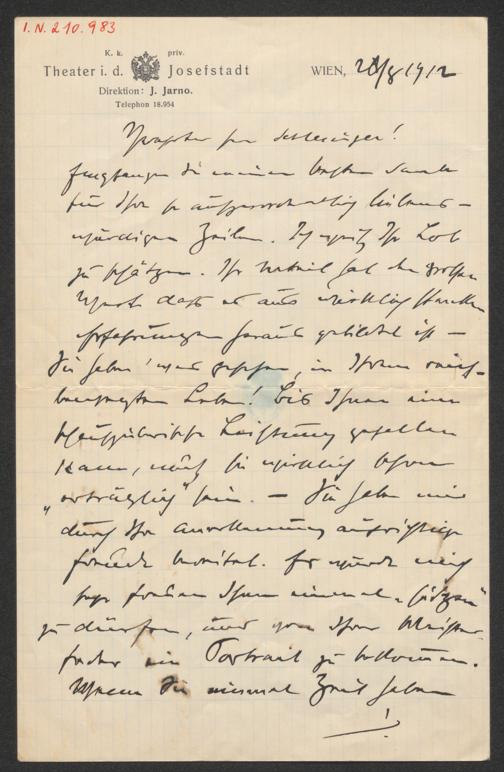 I. N. 210.983
K. k. priv.
Theater i. d. Josefstadt
Direktion: J. Jarno.
Telephon 18.954
WIEN, /8 1912
Herr Schlesinger!
Empfangen Sie meinen besten Dank
für Ihre so außerordentlich liebens-
würdigen Zeilen. Ich weiß Ihr Lob
zu schätzen. Ihr Urteil hat den großen
Wert daß es aus wirklich starken
Erfahrungen heraus gebildet ist –
Sie haben 'was gesehen, in Ihrem reich-
bewegten Leben! Bis Ihnen eine
schauspielerische Leistung gefallen
kann, muß sie wirklich schon
„erträglich" sein. – Sie haben mir
durch Ihre Anerkennung aufrichtige
Freude bereitet. Es würde mich
sehr freuen Ihnen einmal „sitzen"
zu dürfen, und von Ihrer Meister-
feder ein Portrait zu bekommen.
Wenn Sie einmal Zeit haben
!